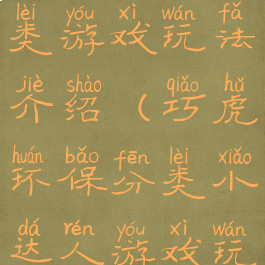 lèi yóu xì wán fǎ
类游戏玩法
jiè shào qiǎo hǔ
介绍（巧虎
huán bǎo fēn lèi xiǎo
环保分类小
dá rén yóu xì wán
达人游戏玩